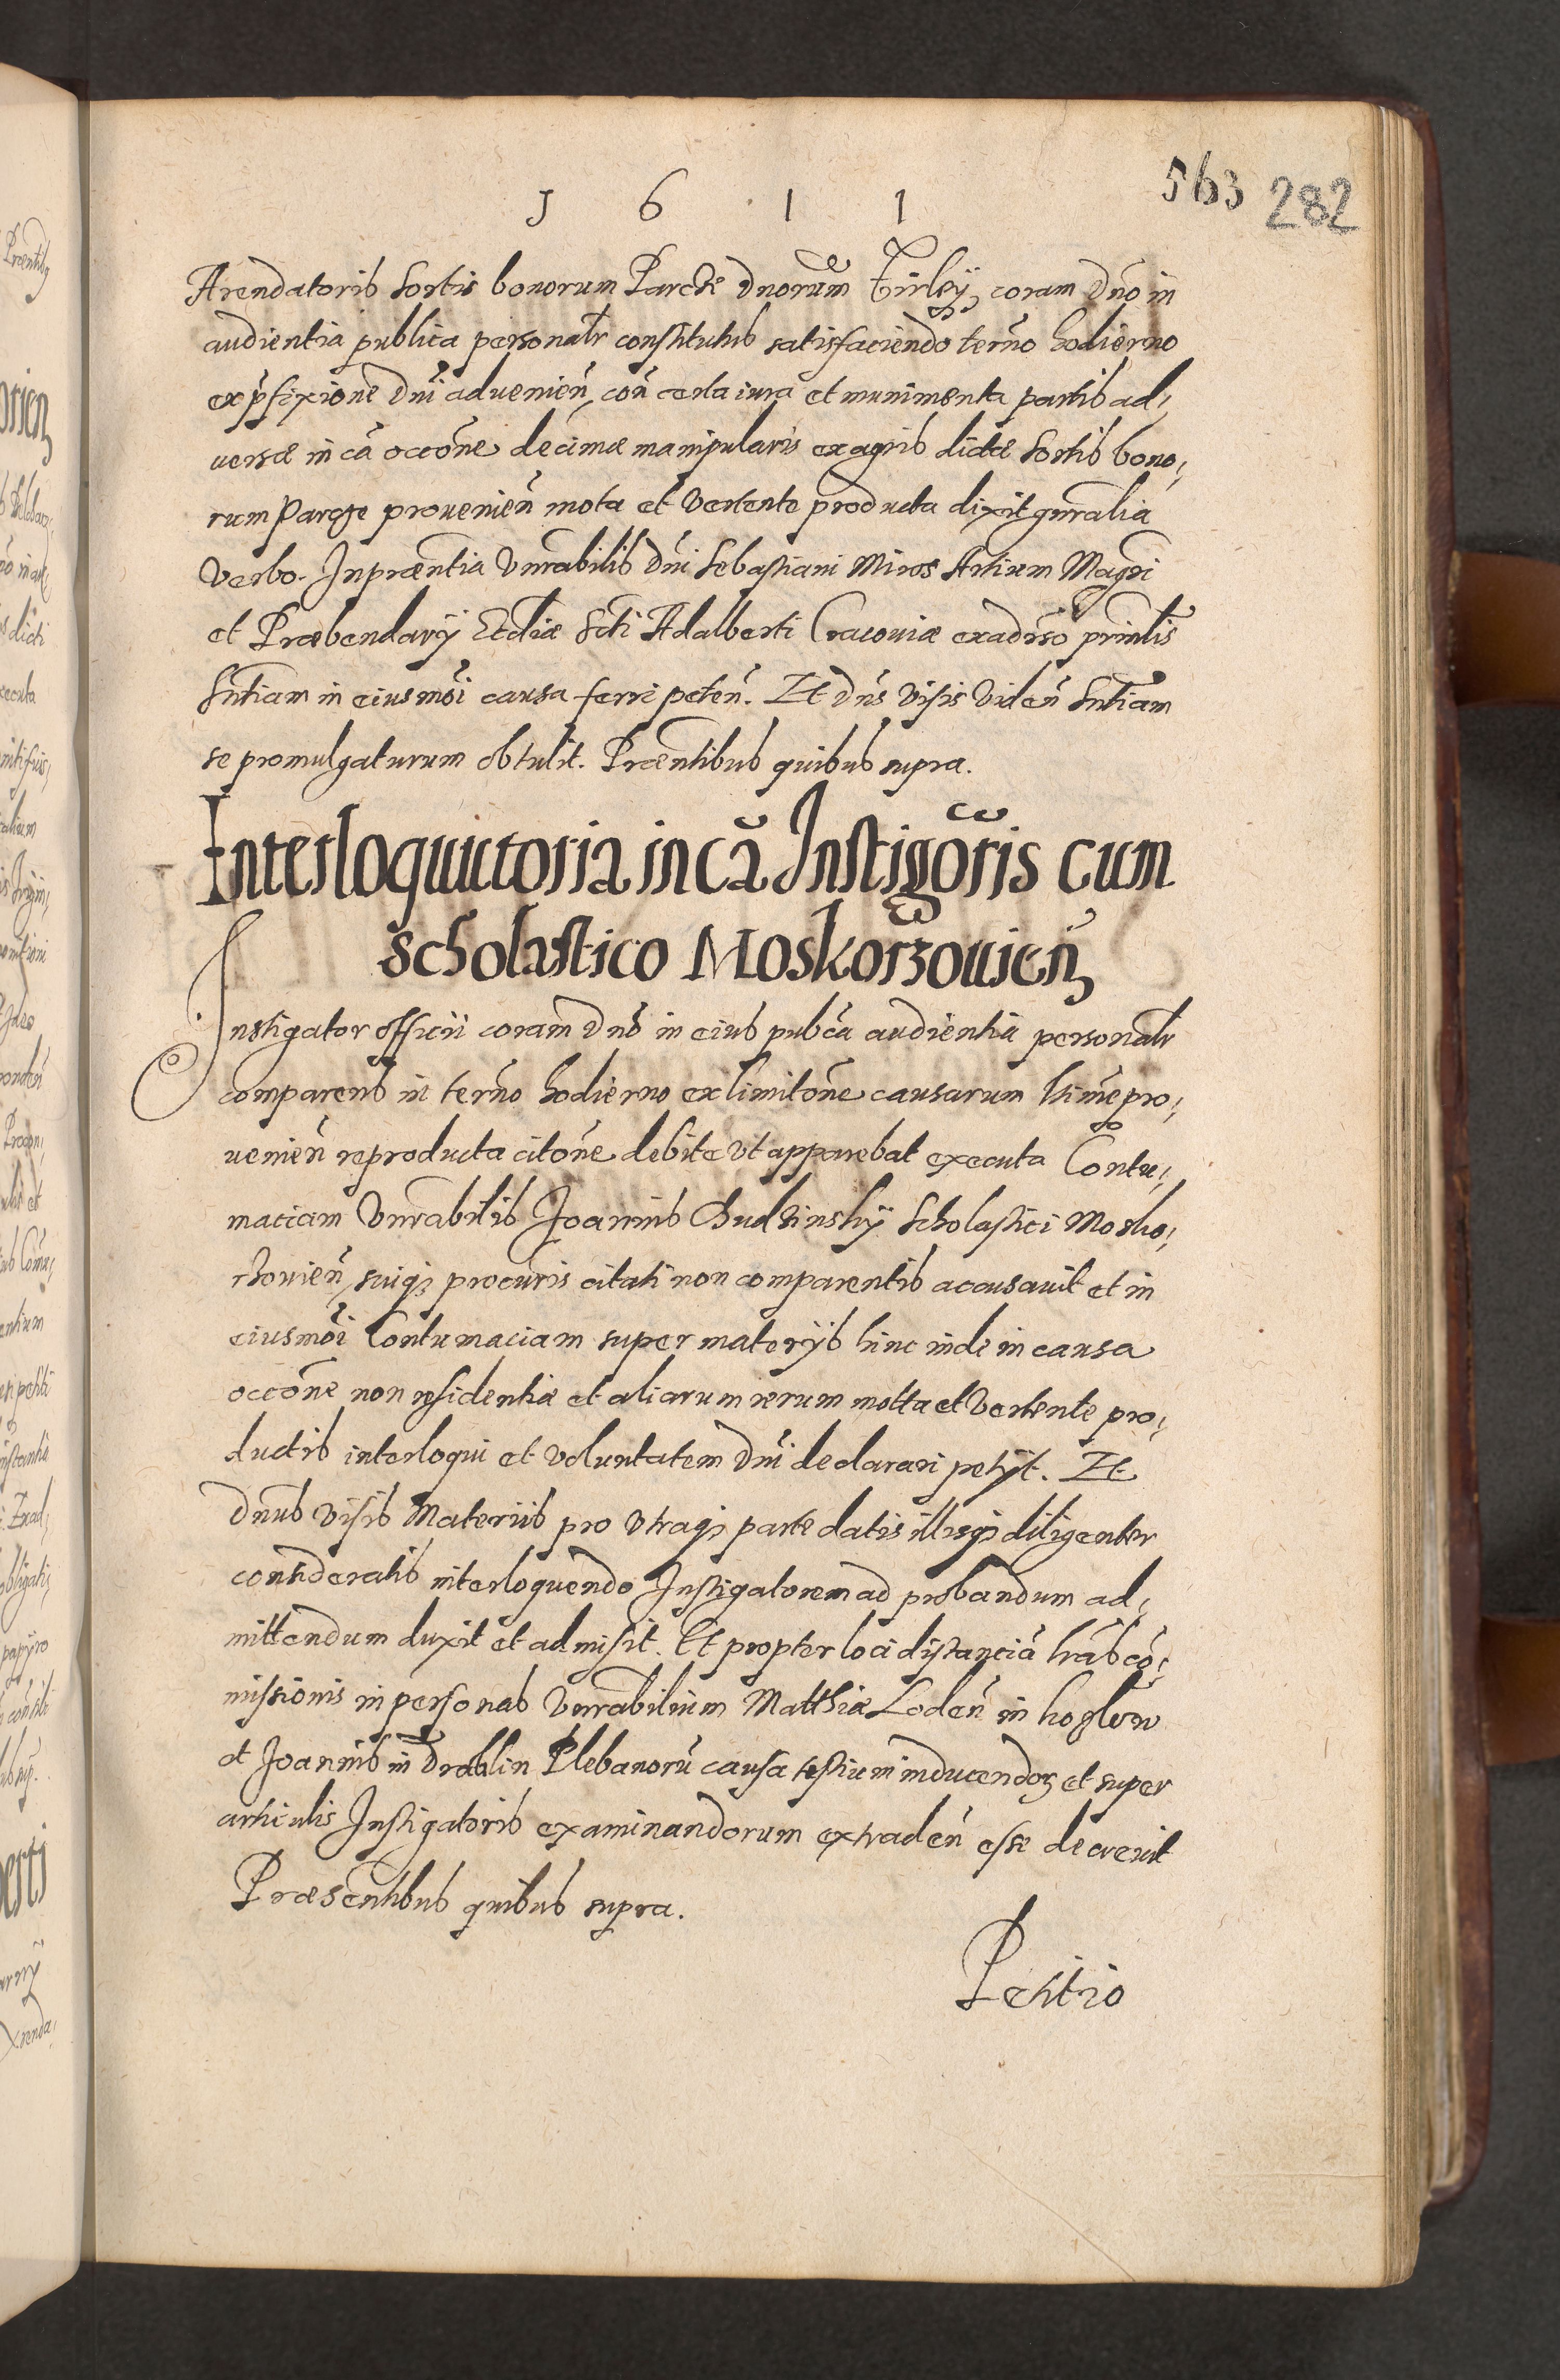 1 6 1 1
563 282
Arendatoris sortis bonorum Parcze Dnorum Firley, coram Dno in
audientia publica personalr constitutus satisfaciendo termo hodierno
ex pfixione Dni aduenien, con certa iura et munimenta partis ad¬
uersæ in ca occone decimæ manipularis ex agris dictæ sortis bono¬
rum Parcze prouenien mota et vertente producta dixit gnralia
verbo. In præntia Vnrabilis Dni Sebastiani Miros Artium Magri
et Præbendarij Ecclæ Scti Adalberti Cracouiæ ex aduerso
Sntiam in eiusmoi causa ferri peten. Et Dns visis viden Sntiam
se promulgaturum obtulit. Præntibus quibus supra.
Interloquutoria in ca Instigoris cum
scholastico Moskorzouien
Instigator officii coram Dno in eius pubca audientia personalr
comparens in termo hodierno ex limitone causarum pro¬
uenien reproducta citone debite vt apparebat executa Contu¬
maciam Vnrabilis Joannis Chudzinskij Scholastici Mosko¬
rzouien suiq procuris citati non comparentis accusauit et in
eiusmoi Contumaciam super materijs hinc inde in causa
occone non residentiæ et aliarum rerum motta et vertente pro¬
ductis interloqui et voluntatem Dni declarari petijt. Et
Dnus visis Materiis pro vtraq parte datis illisq diligenter
consideratis interloquendo Instigatorem ad probandum ad¬
mittendum duxit et admisit. Et propter loci distanciã lras cõ¬
missionis in personas Vnrabilium Matthiæ Loden in
et Joannis in Plebanorũ causa testium inducendor et super
articulis Instigatoris examinandorum extraden esse decreuit
Præsentibus quibus supra.
Petitio